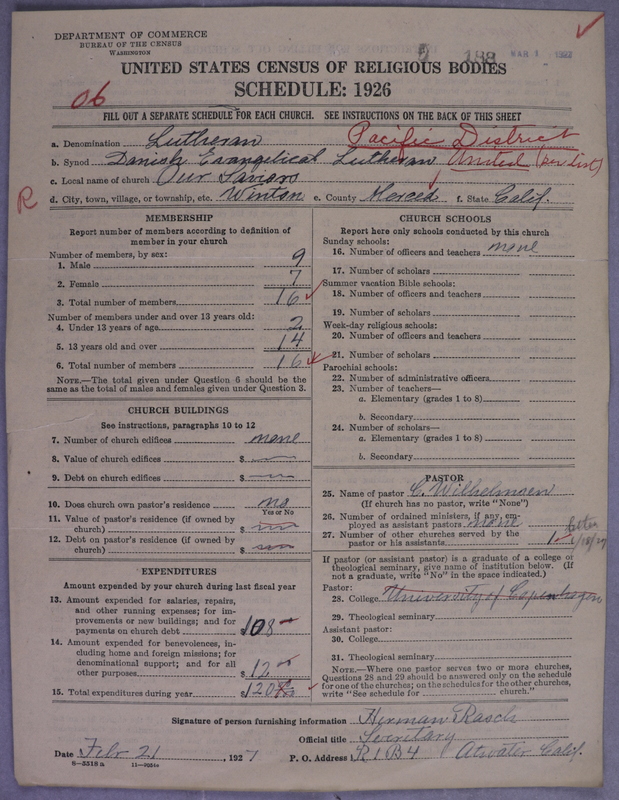 DEPARTMENT OF COMMERCE
BUREAU OF THE CENSUS
WASHINGTON
188
MAR 1 1927
UNITED STATES CENSUS OF RELIGIOUS BODIES
SCHEDULE: 1926
06
FILL OUT A SEPARATE SCHEDULE FOR EACH CHURCH. SEE INSTRUCTIONS ON THE BACK OF THIS SHEET
a. Denomination Lutheran Pacific District
b. Synod Danish Evangelical Lutheran United (per list)
c. Local name of church Our Saviors
R
d. City, town, village, or township, etc. Winton e. County Merced f. State Calif.
MEMBERSHIP
Report number of members according to definition of
member in your church
Number of members, by sex:
1. Male 9
2. Female 7
3. Total number of members 16
Number of members under and over 13 years old:
4. Under 13 years of age 2
5. 13 years old and over 14
6. Total number of members 16
NOTE.—The total given under Question 6 should be the
same as the total of males and females given under Question 3.
CHURCH BUILDINGS
See instructions, paragraphs 10 to 12
7. Number of church edifices none
8. Value of church edifices $
9. Debt on church edifices $
10. Does church own pastor's residence no
Yes or No
11. Value of pastor's residence (if owned by
church) $
12. Debt on pastor's residence (if owned by
church) $
EXPENDITURES
Amount expended by your church during last fiscal year
13. Amount expended for salaries, repairs,
and other running expenses; for im-
provements or new buildings; and for
payments on church debt $108
14. Amount expended for benevolences, in-
cluding home and foreign missions; for
denominational support; and for all
other purposes $12
15. Total expenditures during year $120
CHURCH SCHOOLS
Report here only schools conducted by this church
Sunday schools:
16. Number of officers and teachers none
17. Number of scholars
Summer vacation Bible schools:
18. Number of officers and teachers
19. Number of scholars
Week-day religious schools:
20. Number of officers and teachers
21. Number of scholars
Parochial schools:
22. Number of administrative officers
23. Number of teachers—
a. Elementary (grades 1 to 8)
b. Secondary
24. Number of scholars—
a. Elementary (grades 1 to 8)
b. Secondary
PASTOR
25. Name of pastor C. Wilhelmsen
(If church has no pastor, write "None")
26. Number of ordained ministers, if any, em-
ployed as assistant pastors none
27. Number of other churches served by the
pastor or his assistants 1
If pastor (or assistant pastor) is a graduate of a college or
theological seminary, give name of institution below. (If
not a graduate, write "No" in the space indicated.)
Pastor:
28. College University of Copenhagen
29. Theological seminary
Assistant pastor:
30. College
31. Theological seminary
NOTE.—Where one pastor serves two or more churches,
Questions 28 and 29 should be answered only on the schedule
for one of the churches; on the schedules for the other churches,
write "See schedule for church."
Signature of person furnishing information Herman Rasch
Official title Secretary
Date Febr 21, 1927 P. O. Address R 1 B 4 Atwater Calif.
8—5318 a